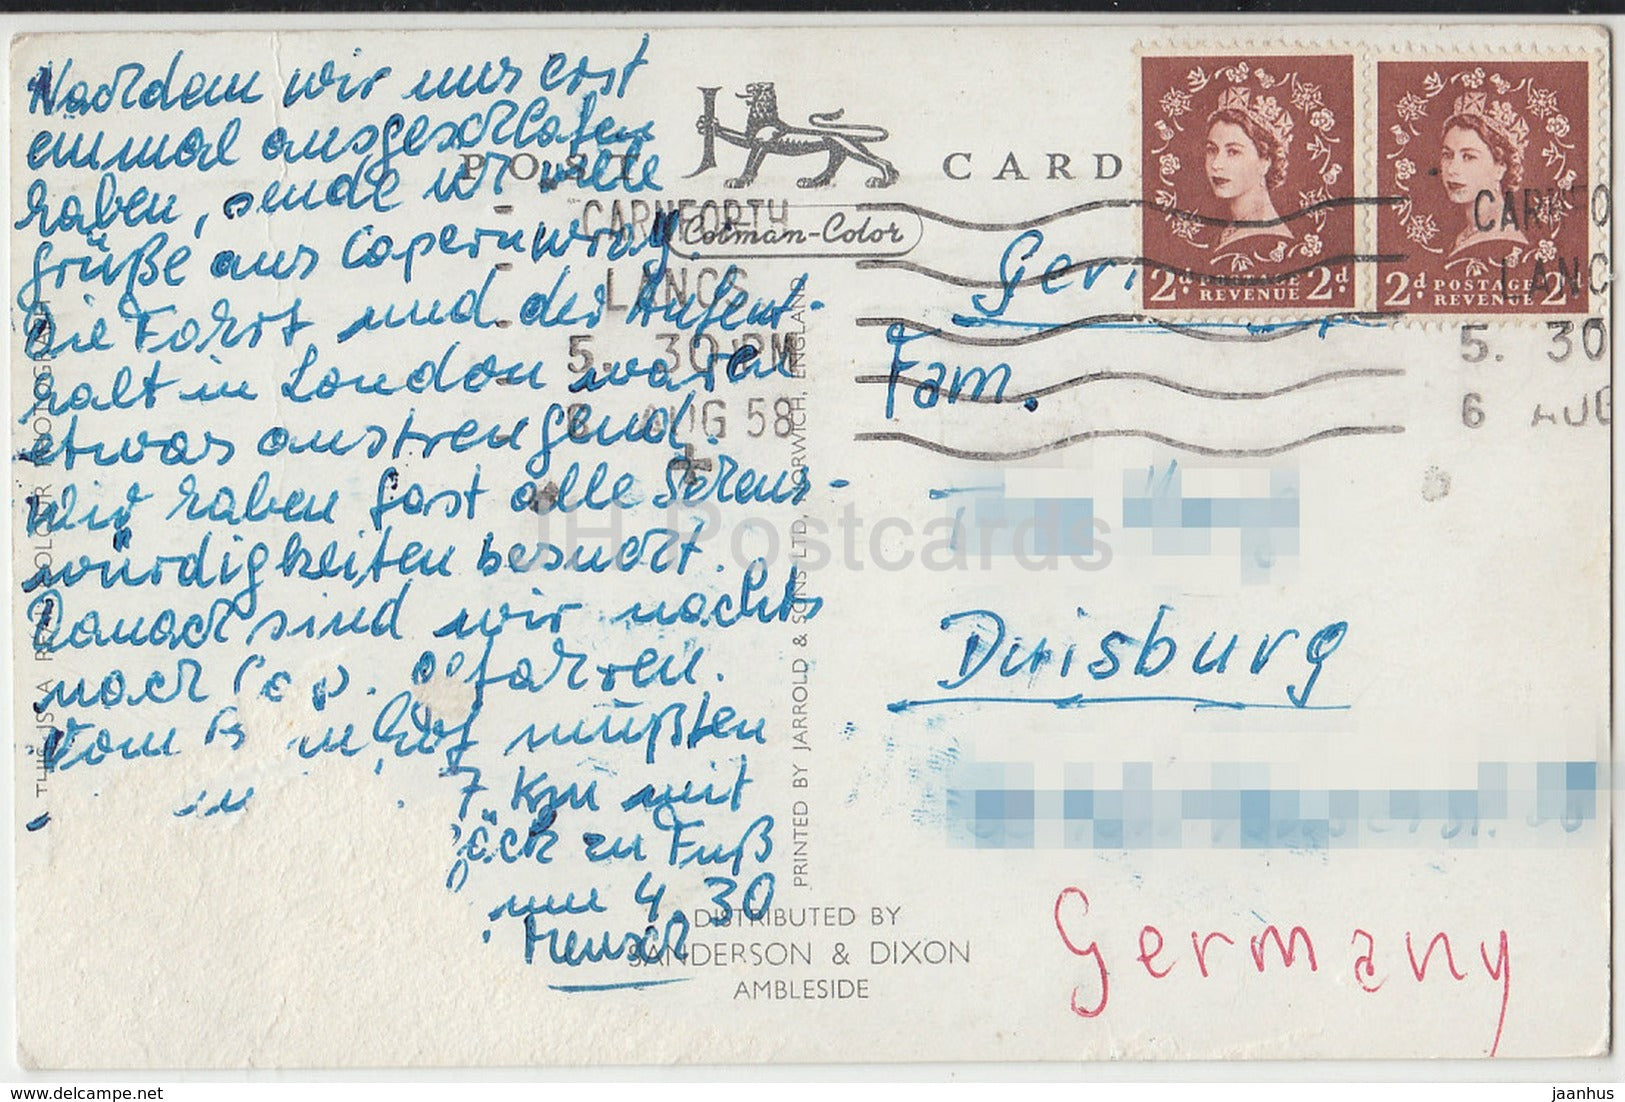 Nachdem wir uns erst
einmal ausgeschlafen
haben, sende wir viele
Grüße aus Capernwray.
Die Fahrt und der Aufent-
halt in London waren
etwas anstrengend.
Wir haben fast alle Sehens-
würdigkeiten besucht.
Danach sind wir nachts
nach Cap. gefahren.
Vom B  nhof mußten
7 km mit
äck zu Fuß
um 4.30
POST CARD
Colman-Color
CARNFORTH
LANCS
5. 30 PM
6 AUG 58
2d POSTAGE REVENUE 2d
2d POSTAGE REVENUE 2d
CARNFO
LANC
5. 30
6 AUG
Fam.
Duisburg
Germany
THIS IS A REAL COLOUR PHOTOGRAPH
PRINTED BY JARROLD & SONS LTD, NORWICH, ENGLAND
DISTRIBUTED BY
SANDERSON & DIXON
AMBLESIDE
JH Postcards
www.delcampe.net
jaanhus